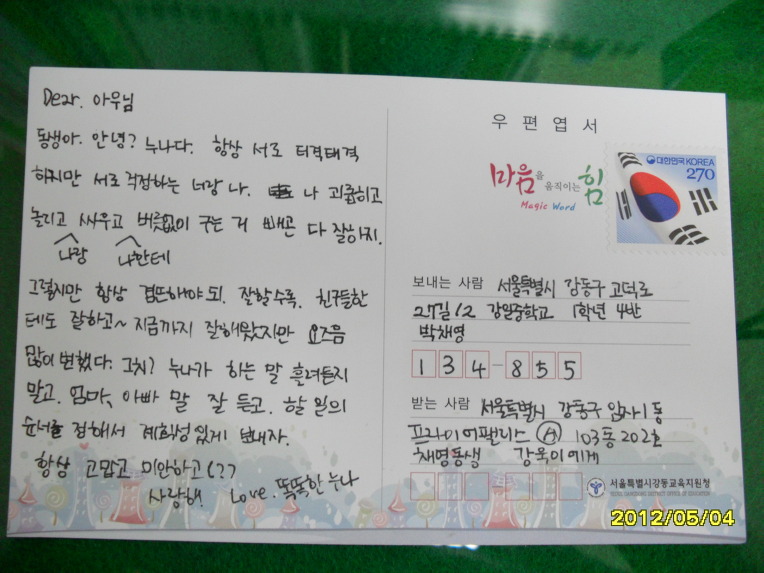 Dear. 아우님
동생아. 안녕? 누나다. 항상 서로 티격태격
하지만 서로 걱정하는 너랑 나. 나 괴롭히고
놀리고 싸우고 버릇없이 구는 거 빼곤 다 잘하지.
나랑 나한테
그렇지만 항상 겸손해야 되. 잘할수록. 친구들한
테도 잘하고~ 지금까지 잘해왔지만 요즈음
많이 변했다. 그치? 누나가 하는 말 흘려듣지
말고. 엄마, 아빠 말 잘 듣고. 할 일의
순서를 정해서 계획성 있게 보내자.
항상 고맙고 미안하고(??
사랑해! Love. 똑똑한 누나
우편엽서
마음을 움직이는 힘
Magic Word
대한민국 KOREA
270
보내는 사람 서울특별시 강동구 고덕로
27길 12 강일중학교 1학년 4반
박채영
134-855
받는 사람 서울특별시 강동구 암사1동
프라이어팰리스 A 103동 202호
채영동생 강욱이에게
서울특별시강동교육지원청
2012/05/04